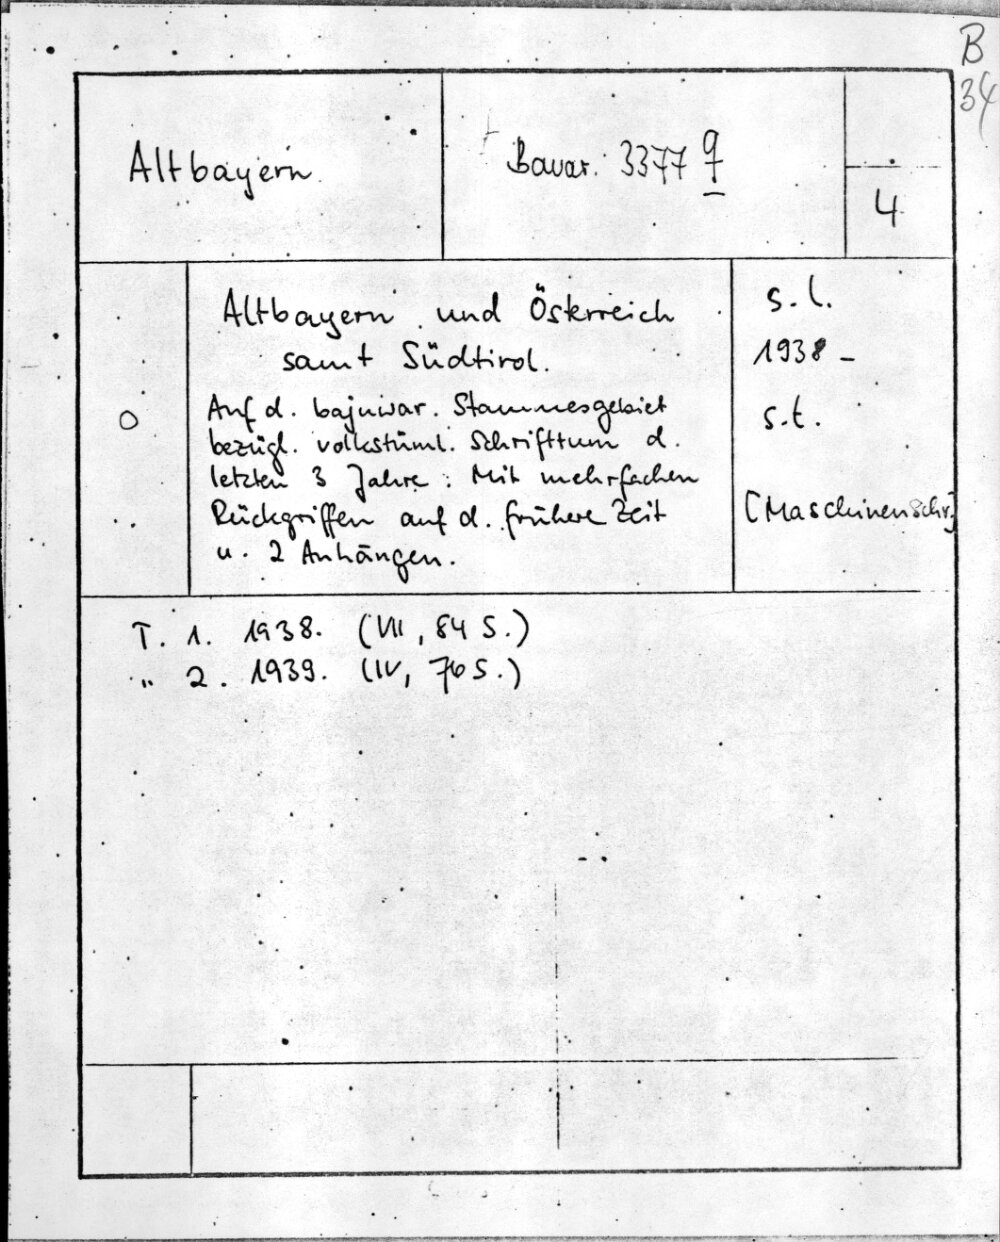 B
34
Altbayern.
Bavar. 3377 q
4
Altbayern und Österreich
samt Südtirol.
Auf d. bajuwar. Stammesgebiet
bezügl. volkstüml. Schrifttum d.
letzten 3 Jahre. Mit mehrfachen
Rückgriffen auf d. frühere Zeit
u. 2 Anhängen.
s. l.
1938 -
s. t.
[Maschinenschr.]
O
T. 1. 1938. (VII, 84 S.)
" 2. 1939. (IV, 76 S.)